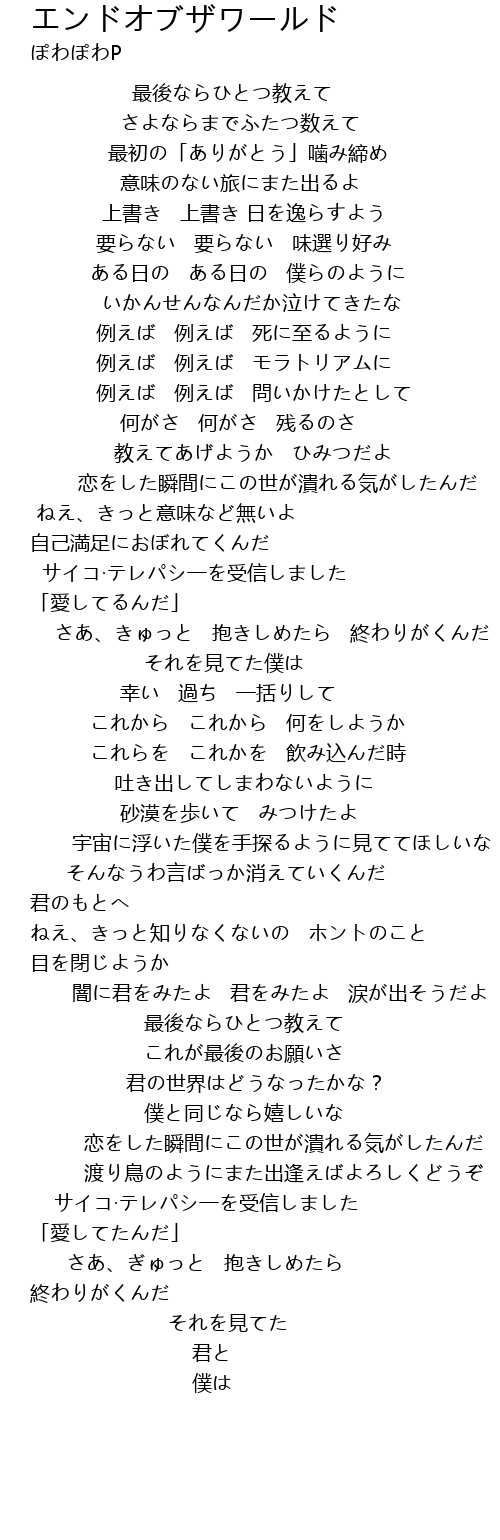 エンドオブザワールド
ぽわぽわP
最後ならひとつ教えて
さよならまでふたつ数えて
最初の「ありがとう」噛み締め
意味のない旅にまた出るよ
上書き　上書き 日を逸らすよう
要らない　要らない　味選り好み
ある日の　ある日の　僕らのように
いかんせんなんだか泣けてきたな
例えば　例えば　死に至るように
例えば　例えば　モラトリアムに
例えば　例えば　問いかけたとして
何がさ　何がさ　残るのさ
教えてあげようか　ひみつだよ
恋をした瞬間にこの世が潰れる気がしたんだ
ねえ、きっと意味など無いよ
自己満足におぼれてくんだ
サイコ·テレパシーを受信しました
「愛してるんだ」
さあ、きゅっと　抱きしめたら　終わりがくんだ
それを見てた僕は
幸い　過ち　一括りして
これから　これから　何をしようか
これらを　これかを　飲み込んだ時
吐き出してしまわないように
砂漠を歩いて　みつけたよ
宇宙に浮いた僕を手探るように見ててほしいな
そんなうわ言ばっか消えていくんだ
君のもとへ
ねえ、きっと知りなくないの　ホントのこと
目を閉じようか
闇に君をみたよ　君をみたよ　涙が出そうだよ
最後ならひとつ教えて
これが最後のお願いさ
君の世界はどうなったかな？
僕と同じなら嬉しいな
恋をした瞬間にこの世が潰れる気がしたんだ
渡り鳥のようにまた出逢えばよろしくどうぞ
サイコ·テレパシーを受信しました
「愛してたんだ」
さあ、ぎゅっと　抱きしめたら
終わりがくんだ
それを見てた
君と
僕は